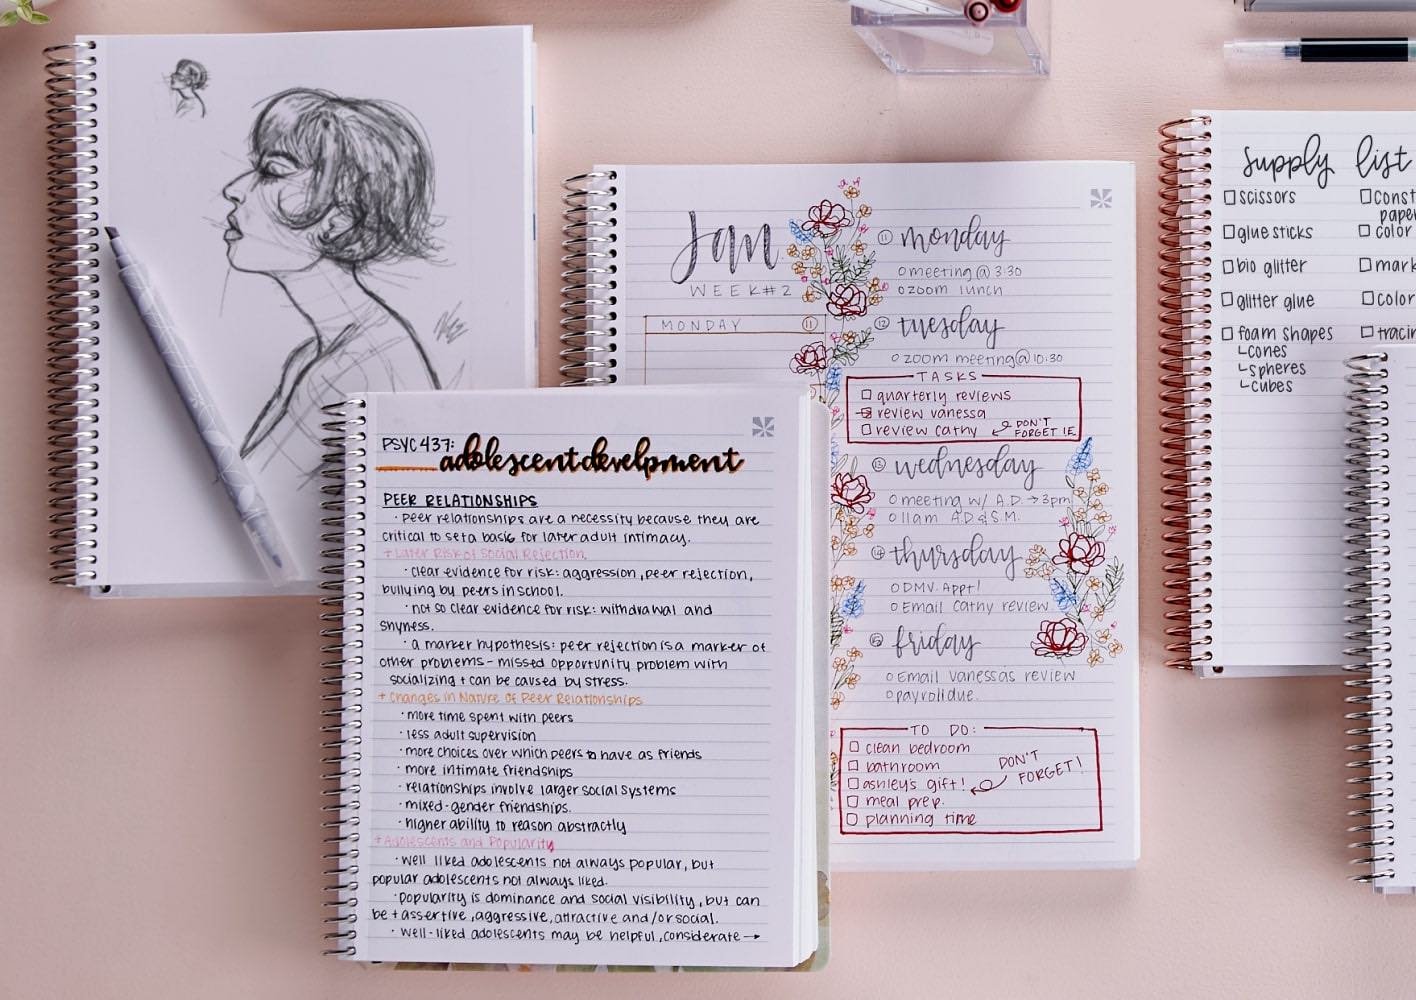 PSYC 437:
adolescent develpment
PEER RELATIONSHIPS
· peer relationships are a necessity because they are
critical to set a basis for later adult intimacy.
+ Later Risk of Social Rejection.
· clear evidence for risk: aggression, peer rejection,
bullying by peers in school.
· not so clear evidence for risk: withdrawal and
shyness.
· a marker hypothesis: peer rejection is a marker of
other problems - missed opportunity problem with
socializing + can be caused by stress.
+ Changes in Nature of Peer Relationships
· more time spent with peers
· less adult supervision
· more choices over which peers to have as friends
· more intimate friendships
· relationships involve larger social systems
· mixed-gender friendships.
· higher ability to reason abstractly
+ Adolescents and Popularity
· well liked adolescents not always popular, but
popular adolescents not always liked.
· popularity is dominance and social visibility, but can
be + assertive, aggressive, attractive and/or social.
· well-liked adolescents may be helpful, considerate →
Jan
WEEK #2
MONDAY 11
11 monday
o meeting @ 3:30
o zoom lunch
12 tuesday
o zoom meeting @ 10:30
TASKS
☐ quarterly reviews
☐ review vanessa
☐ review cathy
DON'T
FORGET I.E.
13 wednesday
o meeting w/ A.D. → 3pm
o 11am A.D. & S.M.
14 thursday
o DMV. Appt!
o Email cathy review
15 friday
o Email vanessas review
o payroll due.
TO DO:
☐ clean bedroom
☐ bathroom
☐ ashley's gift!
☐ meal prep.
☐ planning time
DON'T
FORGET!
supply list
☐ scissors
☐ glue sticks
☐ bio glitter
☐ glitter glue
☐ foam shapes
└ cones
└ spheres
└ cubes
☐ const
paper
☐ color
☐ mark
☐ color
☐ tracin